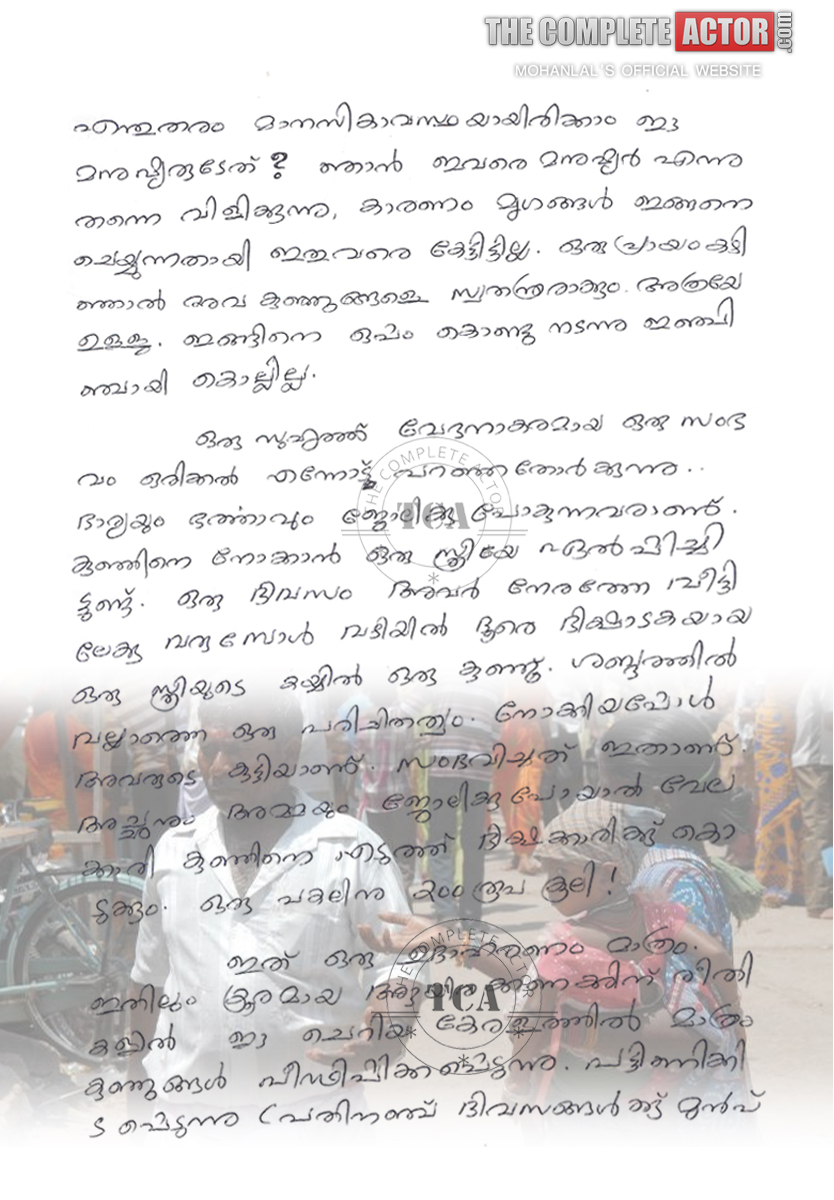 THE COMPLETE ACTOR.com
MOHANLAL'S OFFICIAL WEBSITE
എന്തുതരം മാനസികാവസ്ഥയായിരിക്കാം ഈ
മനുഷ്യരുടേത്? ഞാൻ ഇവരെ മനുഷ്യർ എന്നു
തന്നെ വിളിക്കുന്നു, കാരണം മൃഗങ്ങൾ ഇങ്ങനെ
ചെയ്യുന്നതായി ഇതുവരെ കേട്ടിട്ടില്ല. ഒരു പ്രായം കഴി
ഞ്ഞാൽ അവ കുഞ്ഞുങ്ങളെ സ്വതന്ത്രരാക്കും. അത്രയേ
ഉള്ളൂ. ഇങ്ങിനെ ഒപ്പം കൊണ്ടു നടന്നു ഇഞ്ചി
ഞ്ചായി കൊല്ലില്ല.
ഒരു സുഹൃത്ത് വേദനാകരമായ ഒരു സംഭ
വം ഒരിക്കൽ എന്നോട് പറഞ്ഞതോർക്കുന്നു..
ഭാര്യയും ഭർത്താവും ജോലിക്കു പോകുന്നവരാണ്.
കുഞ്ഞിനെ നോക്കാൻ ഒരു സ്ത്രീയേ ഏൽപ്പിച്ചി
ട്ടുണ്ട്. ഒരു ദിവസം അവർ നേരത്തേ വീട്ടി
ലേക്കു വരുമ്പോൾ വഴിയിൽ ദൂരെ ഭിക്ഷാടകയായ
ഒരു സ്ത്രീയുടെ കയ്യിൽ ഒരു കുഞ്ഞ്. ശബ്ദത്തിൽ
വല്ലാത്ത ഒരു പരിചിതത്വം. നോക്കിയപ്പോൾ
അവരുടെ കുട്ടിയാണ്. സംഭവിച്ചത് ഇതാണ്.
അച്ഛനും അമ്മയും ജോലിക്കു പോയാൽ വേല
ക്കാരി കുഞ്ഞിനെ എടുത്ത് ഭിക്ഷക്കാരിക്ക് കൊ
ടുക്കും. ഒരു പകലിനു രൂപ കൂലി!
ഇത് ഒരു ഉദാഹരണം മാത്രം.
ഇതിലും ക്രൂരമായ ആയിരക്കണക്കിന് രീതി
കളിൽ ഈ ചെറിയ കേരളത്തിൽ മാത്രം
കുഞ്ഞുങ്ങൾ പീഢിപ്പിക്കപ്പെടുന്നു. പട്ടിണിക്കി
ടപ്പെടുന്നു (പതിനഞ്ച് ദിവസങ്ങൾക്ക് മുൻപ്
THE COMPLETE ACTOR
TCA
THE COMPLETE ACTOR
TCA